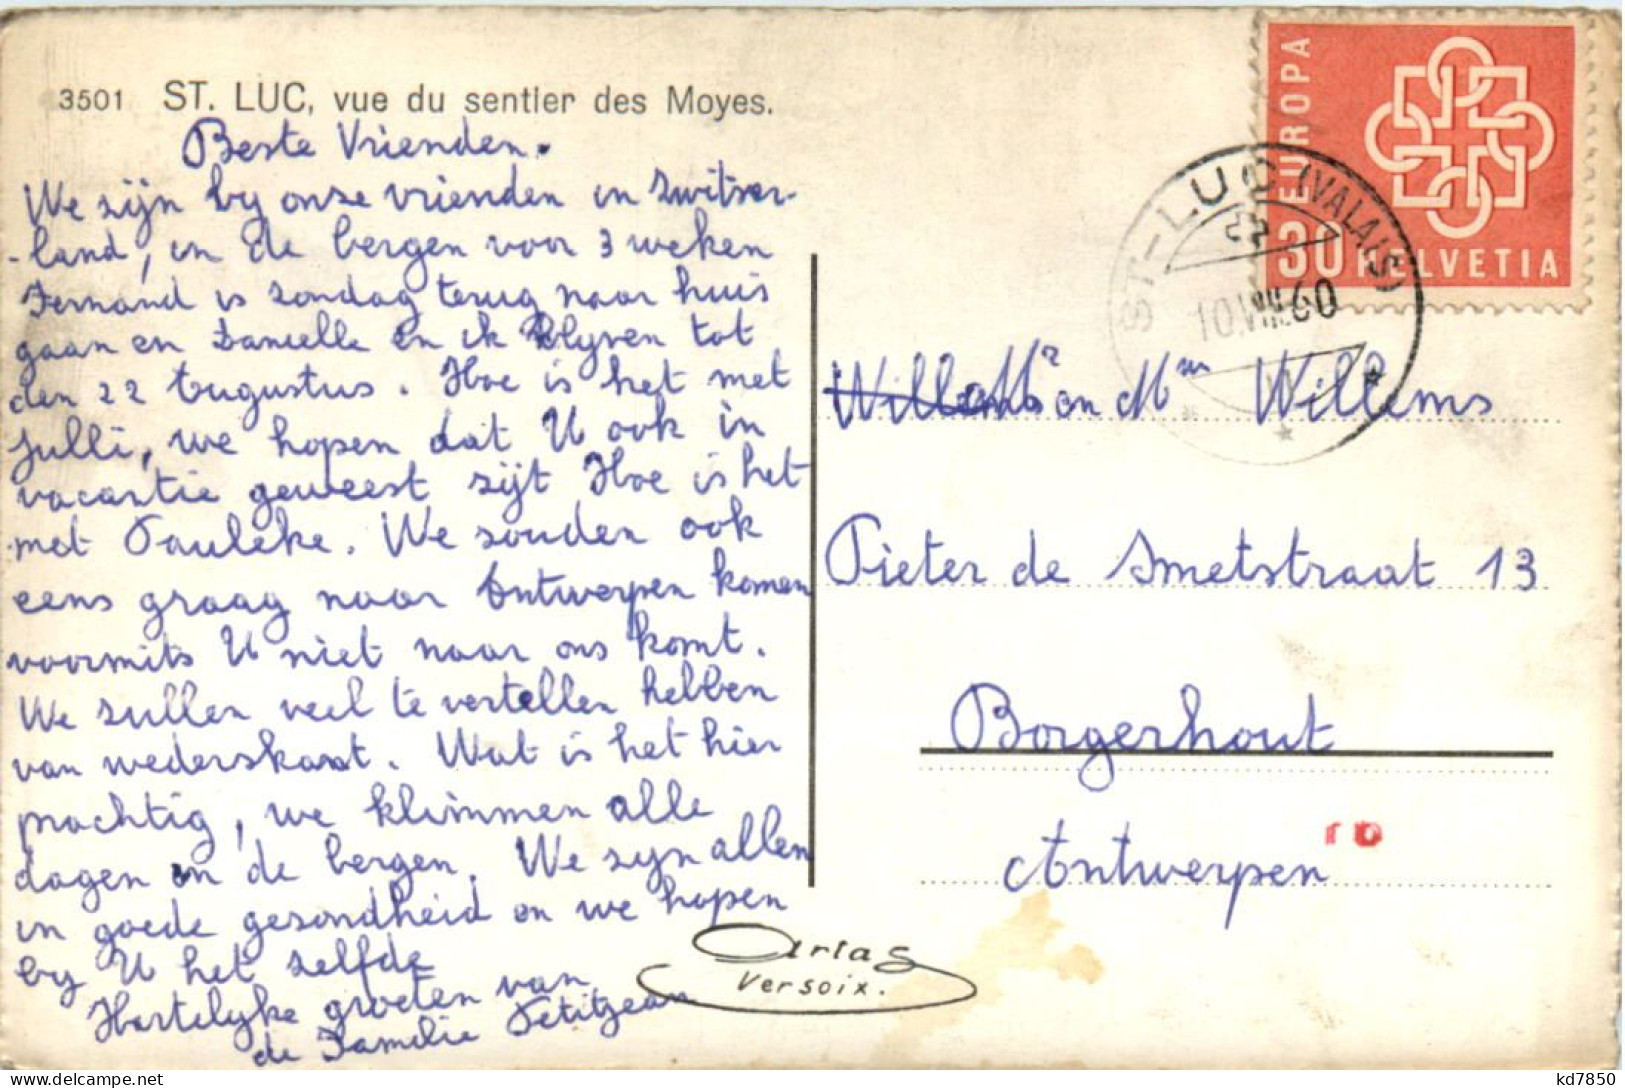 3501 ST. LUC, vue du sentier des Moyes.
Beste Vrienden.
We zijn by onze vrienden in Zwitser-
-land, in de bergen voor 3 weken
Fernand is zondag terug naar huis
gaan en Danielle en ik blyven tot
den 22 Augustus. Hoe is het met
Julli, we hopen dat U ook in
vacantie geweest zijt Hoe is het
met Pauleke. We zouden ook
eens graag naar Antwerpen komen
voormits U niet naar ons komt.
We zullen veel te vertellen hebben
van wederskant. Wat is het hier
prachtig, we klimmen alle
dagen in de bergen. We zyn allen
in goede gezondheid en we hopen
by U het zelfde
Hartelyke groeten van
de Familie Petitjean
EUROPA
30 HELVETIA
ST-LUC (VALAIS)
10.VIII.60
Mr en Mm Willems
Pieter de Smetstraat 13
Borgerhout
Antwerpen
Arlas
Versoix.
kd7850